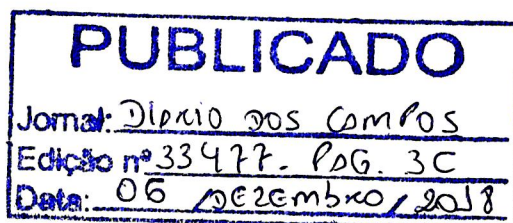 PUBLICADO
Jornal: DIARIO DOS CAMPOS
Edição nº 33477. PAG. 3C
Data: 06 / DEZEMBRO / 2018